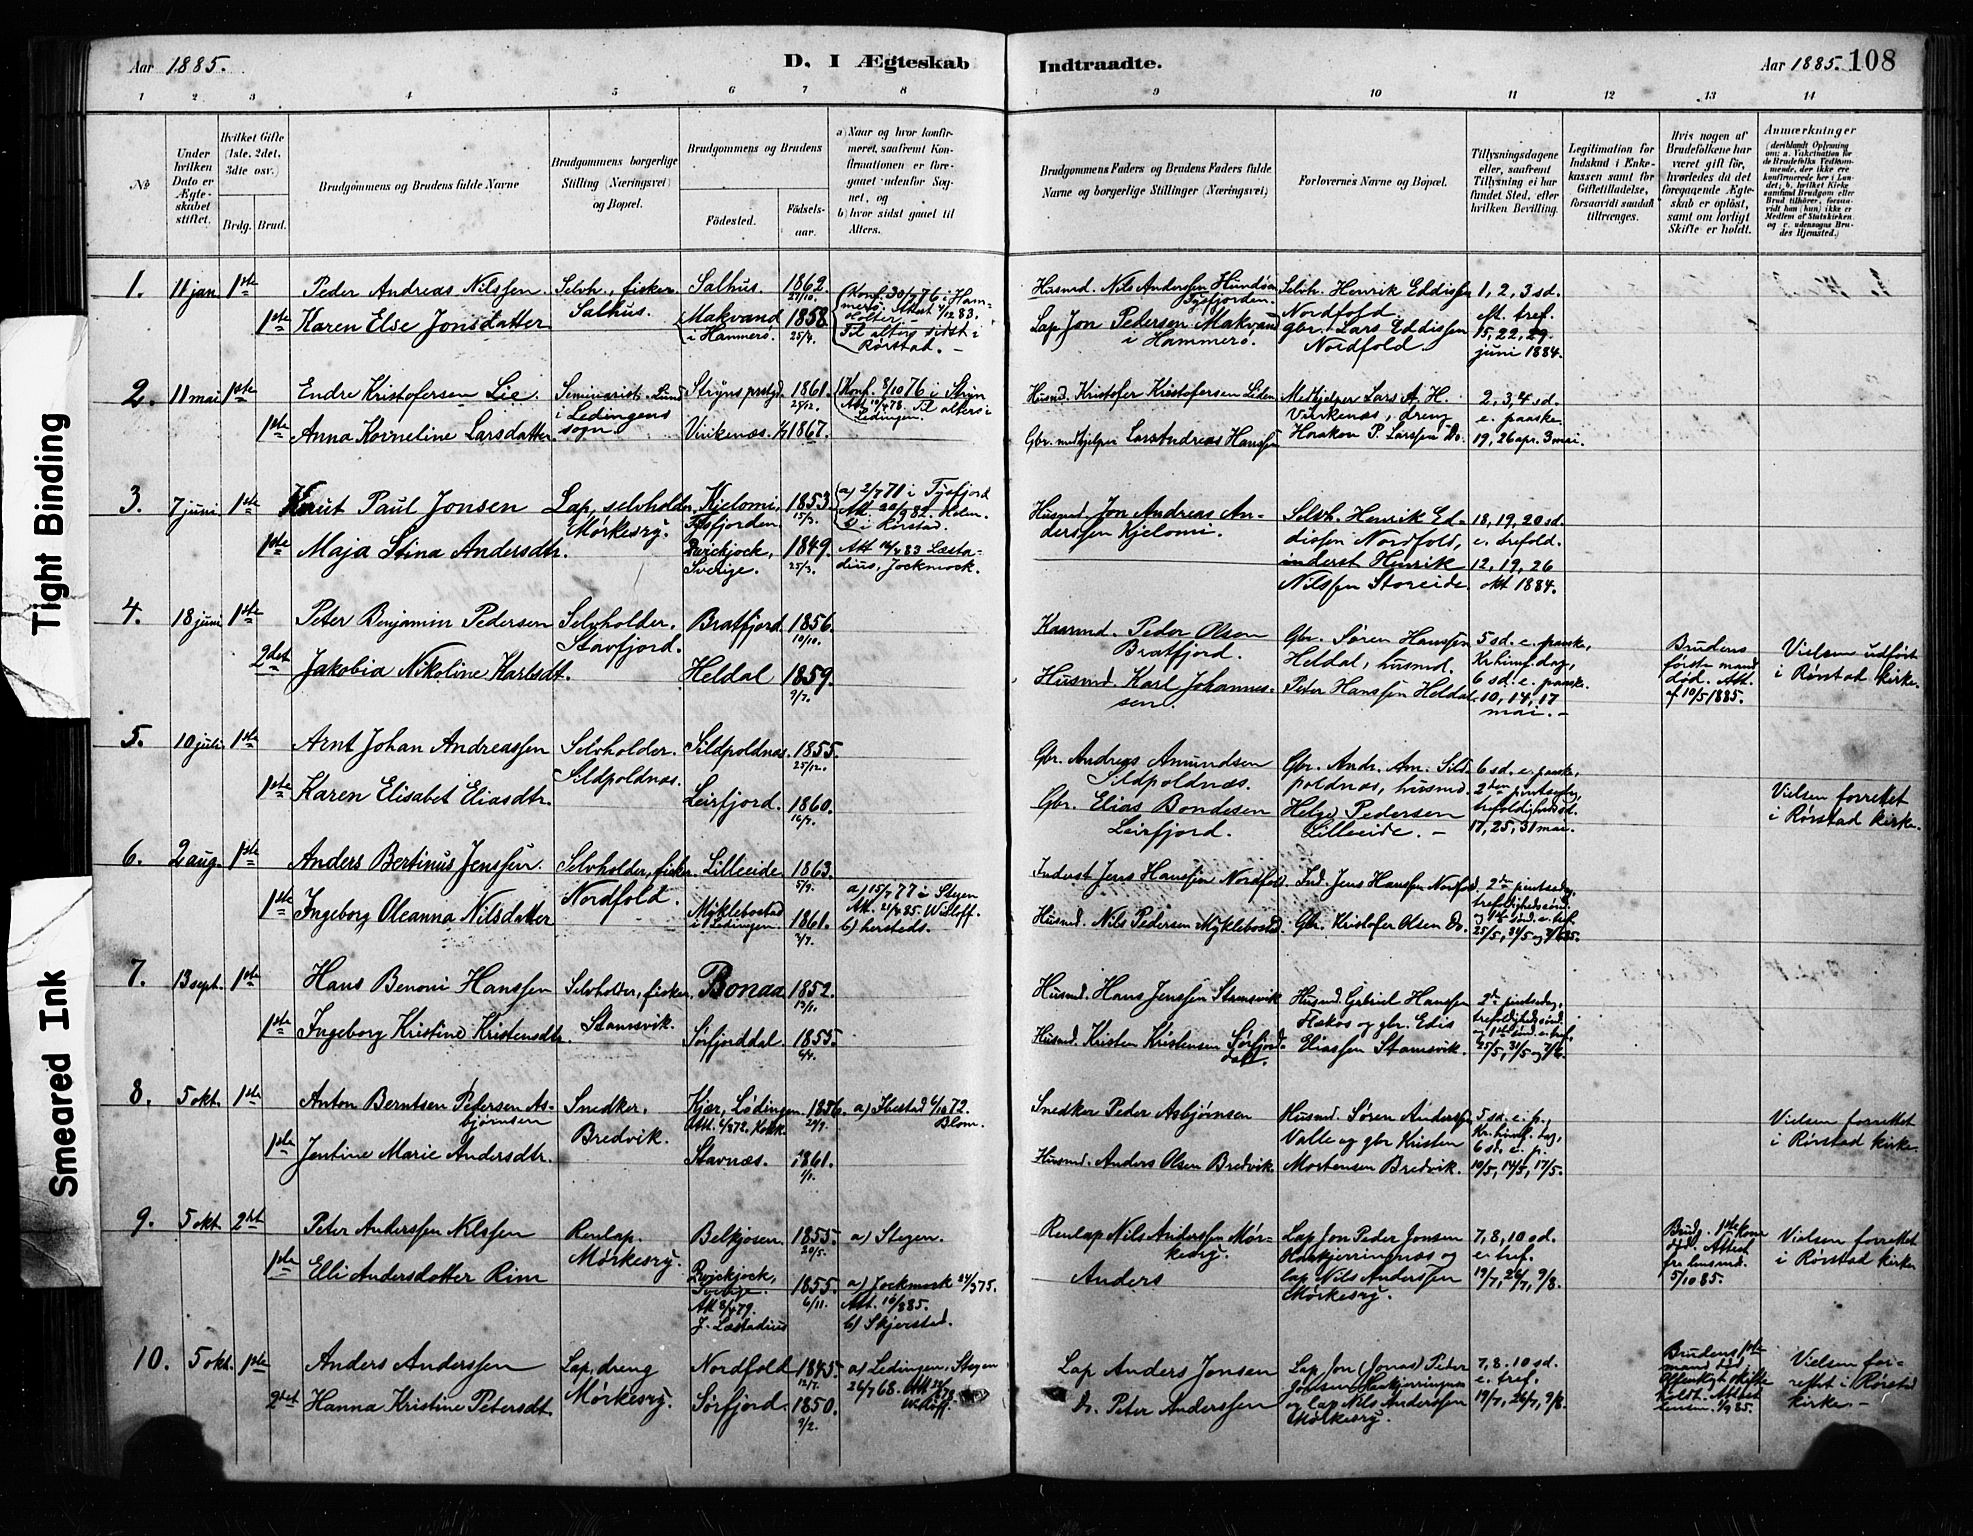 Aar 1885.
D. I Ægteskab
Indtraadte.
Aar 1885. 108
1 2 3 4 5 6 7 8 9 10 11 12 13 14
No
Under hvilken Dato er Ægteskabet stiftet.
Hvilket Gifte (1ste, 2det, 3die osv.)
Brdg. Brud.
Brudgommens og Brudens fulde Navne
Brudgommens borgerlige Stilling (Næringsvei) og Bopæl.
Brudgommens og Brudens
Fødested.
Fødselsaar.
a) Naar og hvor konfirmeret, saafremt Konfirmationen er foregaaet udenfor Sognet, og
b) hvor sidst gaaet til Alters.
Brudgommens Faders og Brudens Faders fulde Navne og borgerlige Stillinger (Næringsvei)
Forlovernes Navne og Bopæl.
Tillysningsdagene eller, saafremt Tillysning ei har fundet Sted, efter hvilken Bevilling.
Legitimation for Indskud i Enkekassen samt for Giftetilladelse, forsaavidt saadan tiltrænges.
Hvis nogen af Brudefolkene har været gift før, hvorledes da det foregaaende Ægteskab er opløst, samt om lovligt Skifte er holdt.
Anmærkninger (deriblandt Oplysning om: a. Vakcination for de Brudefolks Vedkommende, der ikke ere konfirmerede her i Landet; b. hvilket Kirkesamfund Brudgom eller Brud tilhører, forsaavidt han (hun) ikke er Medlem af Statskirken, og c. udensogns Brudes Hjemsted.)
1. 11 jan. 1ste Peder Andreas Nilssen Selvh., fisker Salhus. Salhus. 1862. 27/10.
1ste Karen Else Jonsdatter Makvand i Hammerø. 1858. 25/4.
Konf. 30/7 76 i Hammerø. Attest 4/12 83.
Til alters sidst i Rørstad. -
Husmd. Nils Andersen Tysfjorden.
Lap Jon Pedersen Makvand i Hammerø.
Selvh. Henrik Eddissen Nordfold.
gbr. Lars Eddissen Nordfold.
1, 2, 3 sd. eft. tref. 15, 22, 29. juni 1884.
2. 11 mai 1ste Endre Kristofersen Lie. Seminarist. Lund i Lødingens sogn. Stryns prstgd. 1861. 27/12.
1ste Anna Korneline Larsdatter Virikenæs. 1867.
Konf. 8/10 76 i Stryn Att. 10/4 78. Til alters i Lødingen.
Husmd. Kristofer Kristofersen Liden
Gbr. medhjelper Lars Andreas Hanssen
Medhjelper Lars A. H. Virikenæs, dreng Haakon P. Larssen Do.
2, 3, 4 sd. e. paaske. 19, 26 apr. 3 mai.
3. 7 juni 1ste Knut Paul Jonsen Lap, selvholder. Mørkesvy. Kjelomi, Tysfjorden 1853. 15/3.
1ste Maja Stina Andersdtr. Qvickjock, Sverige. 1849. 25/3.
a) 2/7 71 i Tysfjord Att. 20/9 82. Holm. b) i Rørstad.
Att. 12/4 83 Læstadius, Jockmock.
Husmd. Jon Andreas Anderssen Kjelomi.
Selvh. Henrik Eddissen Nordfold, inderst Henrik Nilssen Storeide.
18, 19, 20 sd. e. trefold. 12, 19, 26 okt 1884.
4. 18 juni 1ste Peter Benjamin Pedersen Selvholder. Stavfjord. Bratfjord. 1856. 10/10.
2det Jakobia Nikoline Karlsdt. Heldal 1859. 9/7.
Kaarmd. Peder Olsen Bratfjord.
Husmd. Karl Johannessen.
Gbr. Søren Hanssen Heldal, husmd. Peter Hanssen Heldal.
5 sd. e. paaske, Kr. himf. dag, 6 sd. e. paaske. 10, 14, 17 mai. -
Brudens første mand død. Att. af 10/5 1885.
Vielsen udført i Rørstad kirke.
5. 10 juli 1ste Arnt Johan Andreassen Selvholder. Sildpoldnæs. Sildpoldnæs. 1855. 25/12.
1ste Karen Elisabet Eliasdtr. Leirfjord. 1860. 16/7.
Gbr. Andreas Amundsen Sildpoldnæs.
Gbr. Elias Bondesen Leirfjord.
Gbr. Andr. Am. Sildpoldnæs, husmd. Helge Pedersen Lilleeide. -
6 sd. e. paaske, 2den pintsedag, trefoldighedssd. 17, 25, 31 mai.
Vielsen forrettet i Rørstad kirke.
6. 2 aug. 1ste Anders Bertinus Jenssen. Selvholder, fisker Nordfold. Lilleeide 1863. 5/9.
1ste Ingeborg Oleanna Nilsdatter Myklebostad i Lødingen. 1861. 2/7.
a) 15/7 77 i Stegen Att. 21/7 85. Wisløff. b) hersteds.
Inderst Jens Hanssen Nordfold.
Husmd. Nils Pedersen Myklebostad.
Ind. Jens Hanssen Nordfold
Gbr. Kristofer Olsen Do.
2den pintsedag, trefoldighedssønd. og 1ste sønd. e. tref. 25/5, 31/5 og 7/6 85.
7. 13 sept. 1ste Hans Benoni Hanssen Selvholder, fisker. Stamsvik. Bonaa 1852. 13/11.
1ste Ingeborg Kristine Kristensdt. Sørfjorddal 1855. 6/4.
Husmd. Hans Jenssen Stamsvik
Husmd. Kristen Kristensen Sørfjorddal.
Husmd. Gabriel Hanssen Flekos og gbr. Edis Eliassen Stamsvik.
2den pintsedag, trefoldighedssønd. og 1ste sønd. e. tref. 25/5, 31/5 og 7/6.
8. 5 okt. 1ste Anton Berntsen Petersen Asbjørnsen Snedker. Bredvik. Kjær, Lødingen Att. 6/8 72. Kolsk. 1856. 29/9.
a) Ibestad 6/10 72. Blom.
1ste Jentine Marie Andersdtr. Stavnæs. 1861. 1/1.
Snedker Peder Asbjørnsen
Husmd. Anders Olsen Bredvik
Husmd. Søren Anderssen Valle og gbr Kristen Mortensen Bredvik.
5 sd. e. p., Kr. himf. dag, 6 sd. e. p. 10/5, 14/5, 17/5.
Vielsen forrettet i Rørstad kirke.
9. 5 okt 2det Peter Anderssen Nilssen Renlap. Mørkesvy. Belkjosen. 1855. 20/5. a) Stegen.
1ste Elli Andersdatter Rim Qvickjock, Sverige. Att 8/4 79. J. Læstadius 1855. 6/11.
a) Jockmock 24/3 75. Att. 16/8 85. b) Skjerstad.
Renlap Nils Anderssen Mørkesvy.
Anders
Lap Jon Peder Jonsen Haukjerringnæs og lap Nils Anderssen Mørkesvy.
7, 8, 10 sd. e. tref. 19/7, 26/7, 9/8.
Brudg. 1ste kone død. Attest fra lensmd. 5/10 85.
Vielsen forrettet i Rørstad kirke
10. 5 okt. 1ste Anders Anderssen Lap, dreng Mørkesvy. Nordfold 1845. 12/7.
2det Hanna Kristine Petersdt. Sørfjord 1850. 9/2.
a) Lødingen, Stegen 26/7 68.
Lap Anders Jonsen
Do. Peter Anderssen
Lap Jon (Jonas) Peder Jonsen Haukjerringnæs og lap Nils Anderssen Mørkesvy.
7, 8. 10 sd. e. tref. 19/7, 26/7, 9/8.
Brudens 1ste mand død. Offentligt skifte holdt. Attest lensm. 1/9 85.
Vielsen forrettet i Rørstad kirke. -
Tight Binding
Smeared Ink